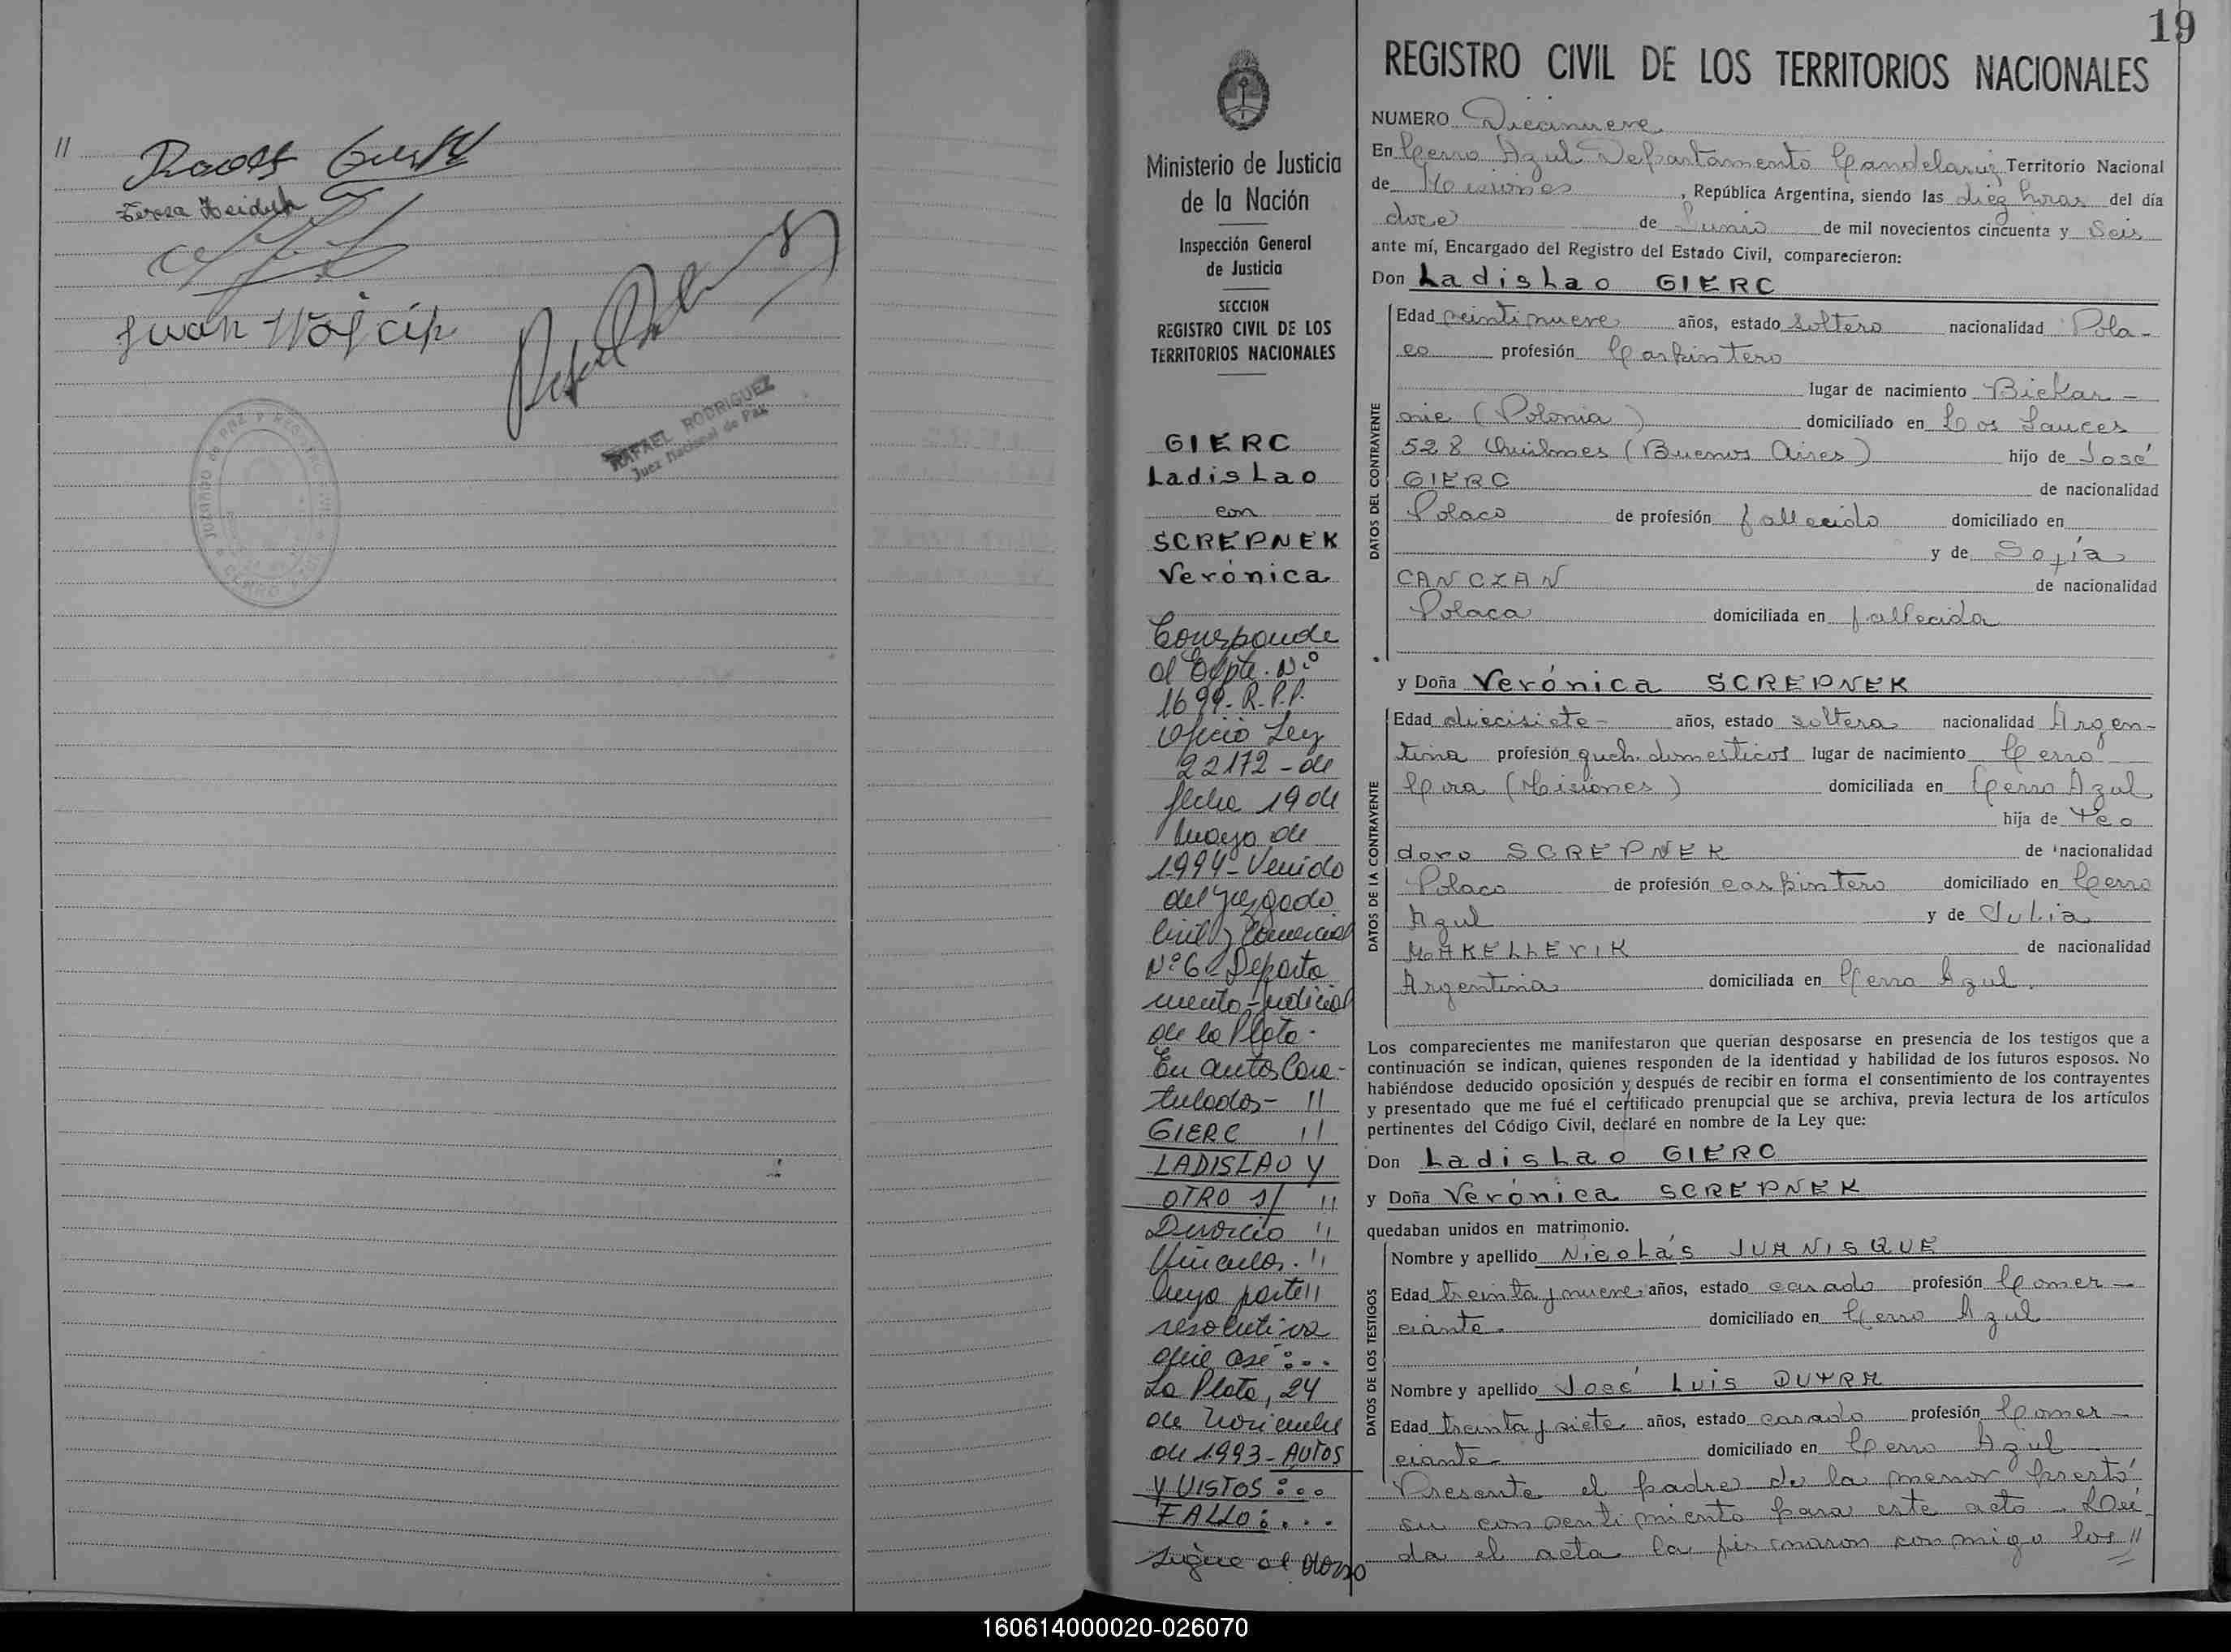 //
Teresa Heiduk
Juan Wójcik
RAFAEL RODRIGUEZ
Juez Nacional de Paz
JUZGADO DE PAZ Y REGISTRO CIVIL
CERRO AZUL
19
REGISTRO CIVIL DE LOS TERRITORIOS NACIONALES
Ministerio de Justicia
de la Nación
Inspección General
de Justicia
SECCION
REGISTRO CIVIL DE LOS
TERRITORIOS NACIONALES
GIERC
Ladislao
con
SCREPNEK
Verónica
Corresponde
al Expte. Nº
1699-R.P.P.
Oficio Ley
22172 - de
fecha 19 de
Mayo de
1994 - Venido
del Juzgado
Civil y Comercial
Nº 6 - Departa
mento Judicial
de la Plata.
En autos Cara-
tulados - "
GIERC "
LADISLAO Y
OTRO S/ "
Divorcio "
Vincular. "
Cuya parte "
resolutiva
dice así:...
La Plata, 24
de Noviembre
de 1993 - AUTOS
Y VISTOS:...
FALLO:...
Sigue al dorso
NUMERO Diecinueve
En Cerro Azul Departamento Candelaria Territorio Nacional
de Misiones, República Argentina, siendo las diez horas del día
doce de Junio de mil novecientos cincuenta y Seis
ante mí, Encargado del Registro del Estado Civil, comparecieron:
Don Ladislao GIERC
DATOS DEL CONTRAYENTE
Edad veintinueve años, estado soltero nacionalidad Pola-
co profesión Carpintero
lugar de nacimiento Biekar-
nie (Polonia) domiciliado en Los Sauces
528 Quilmes (Buenos Aires) hijo de José
GIERC de nacionalidad
Polaco de profesión fallecido domiciliado en
y de Sofía
CANCZAN de nacionalidad
Polaca domiciliada en fallecida
y Doña Verónica SCREPNEK
DATOS DE LA CONTRAYENTE
Edad diecisiete - años, estado soltera nacionalidad Argen-
tina profesión queh. domesticos lugar de nacimiento Cerro
Cora (Misiones) domiciliada en Cerro Azul
hija de Teo
doro SCREPNEK de nacionalidad
Polaco de profesión carpintero domiciliado en Cerro
Azul y de Julia
MAKELLEVIK de nacionalidad
Argentina domiciliada en Cerro Azul.
Los comparecientes me manifestaron que querían desposarse en presencia de los testigos que a
continuación se indican, quienes responden de la identidad y habilidad de los futuros esposos. No
habiéndose deducido oposición y después de recibir en forma el consentimiento de los contrayentes
y presentado que me fué el certificado prenupcial que se archiva, previa lectura de los artículos
pertinentes del Código Civil, declaré en nombre de la Ley que:
Don Ladislao GIERC
y Doña Verónica SCREPNEK
quedaban unidos en matrimonio.
DATOS DE LOS TESTIGOS
Nombre y apellido Nicolás JUANISQUE
Edad treinta y nueve años, estado casado profesión Comer-
ciante. domiciliado en Cerro Azul
Nombre y apellido José Luis DUTRA
Edad treinta y siete años, estado casado profesión Comer-
ciante - domiciliado en Cerro Azul
Presente el padre de la menor prestó
su consentimiento para este acto. Leí
da el acta la firmaron conmigo los //
160614000020-026070